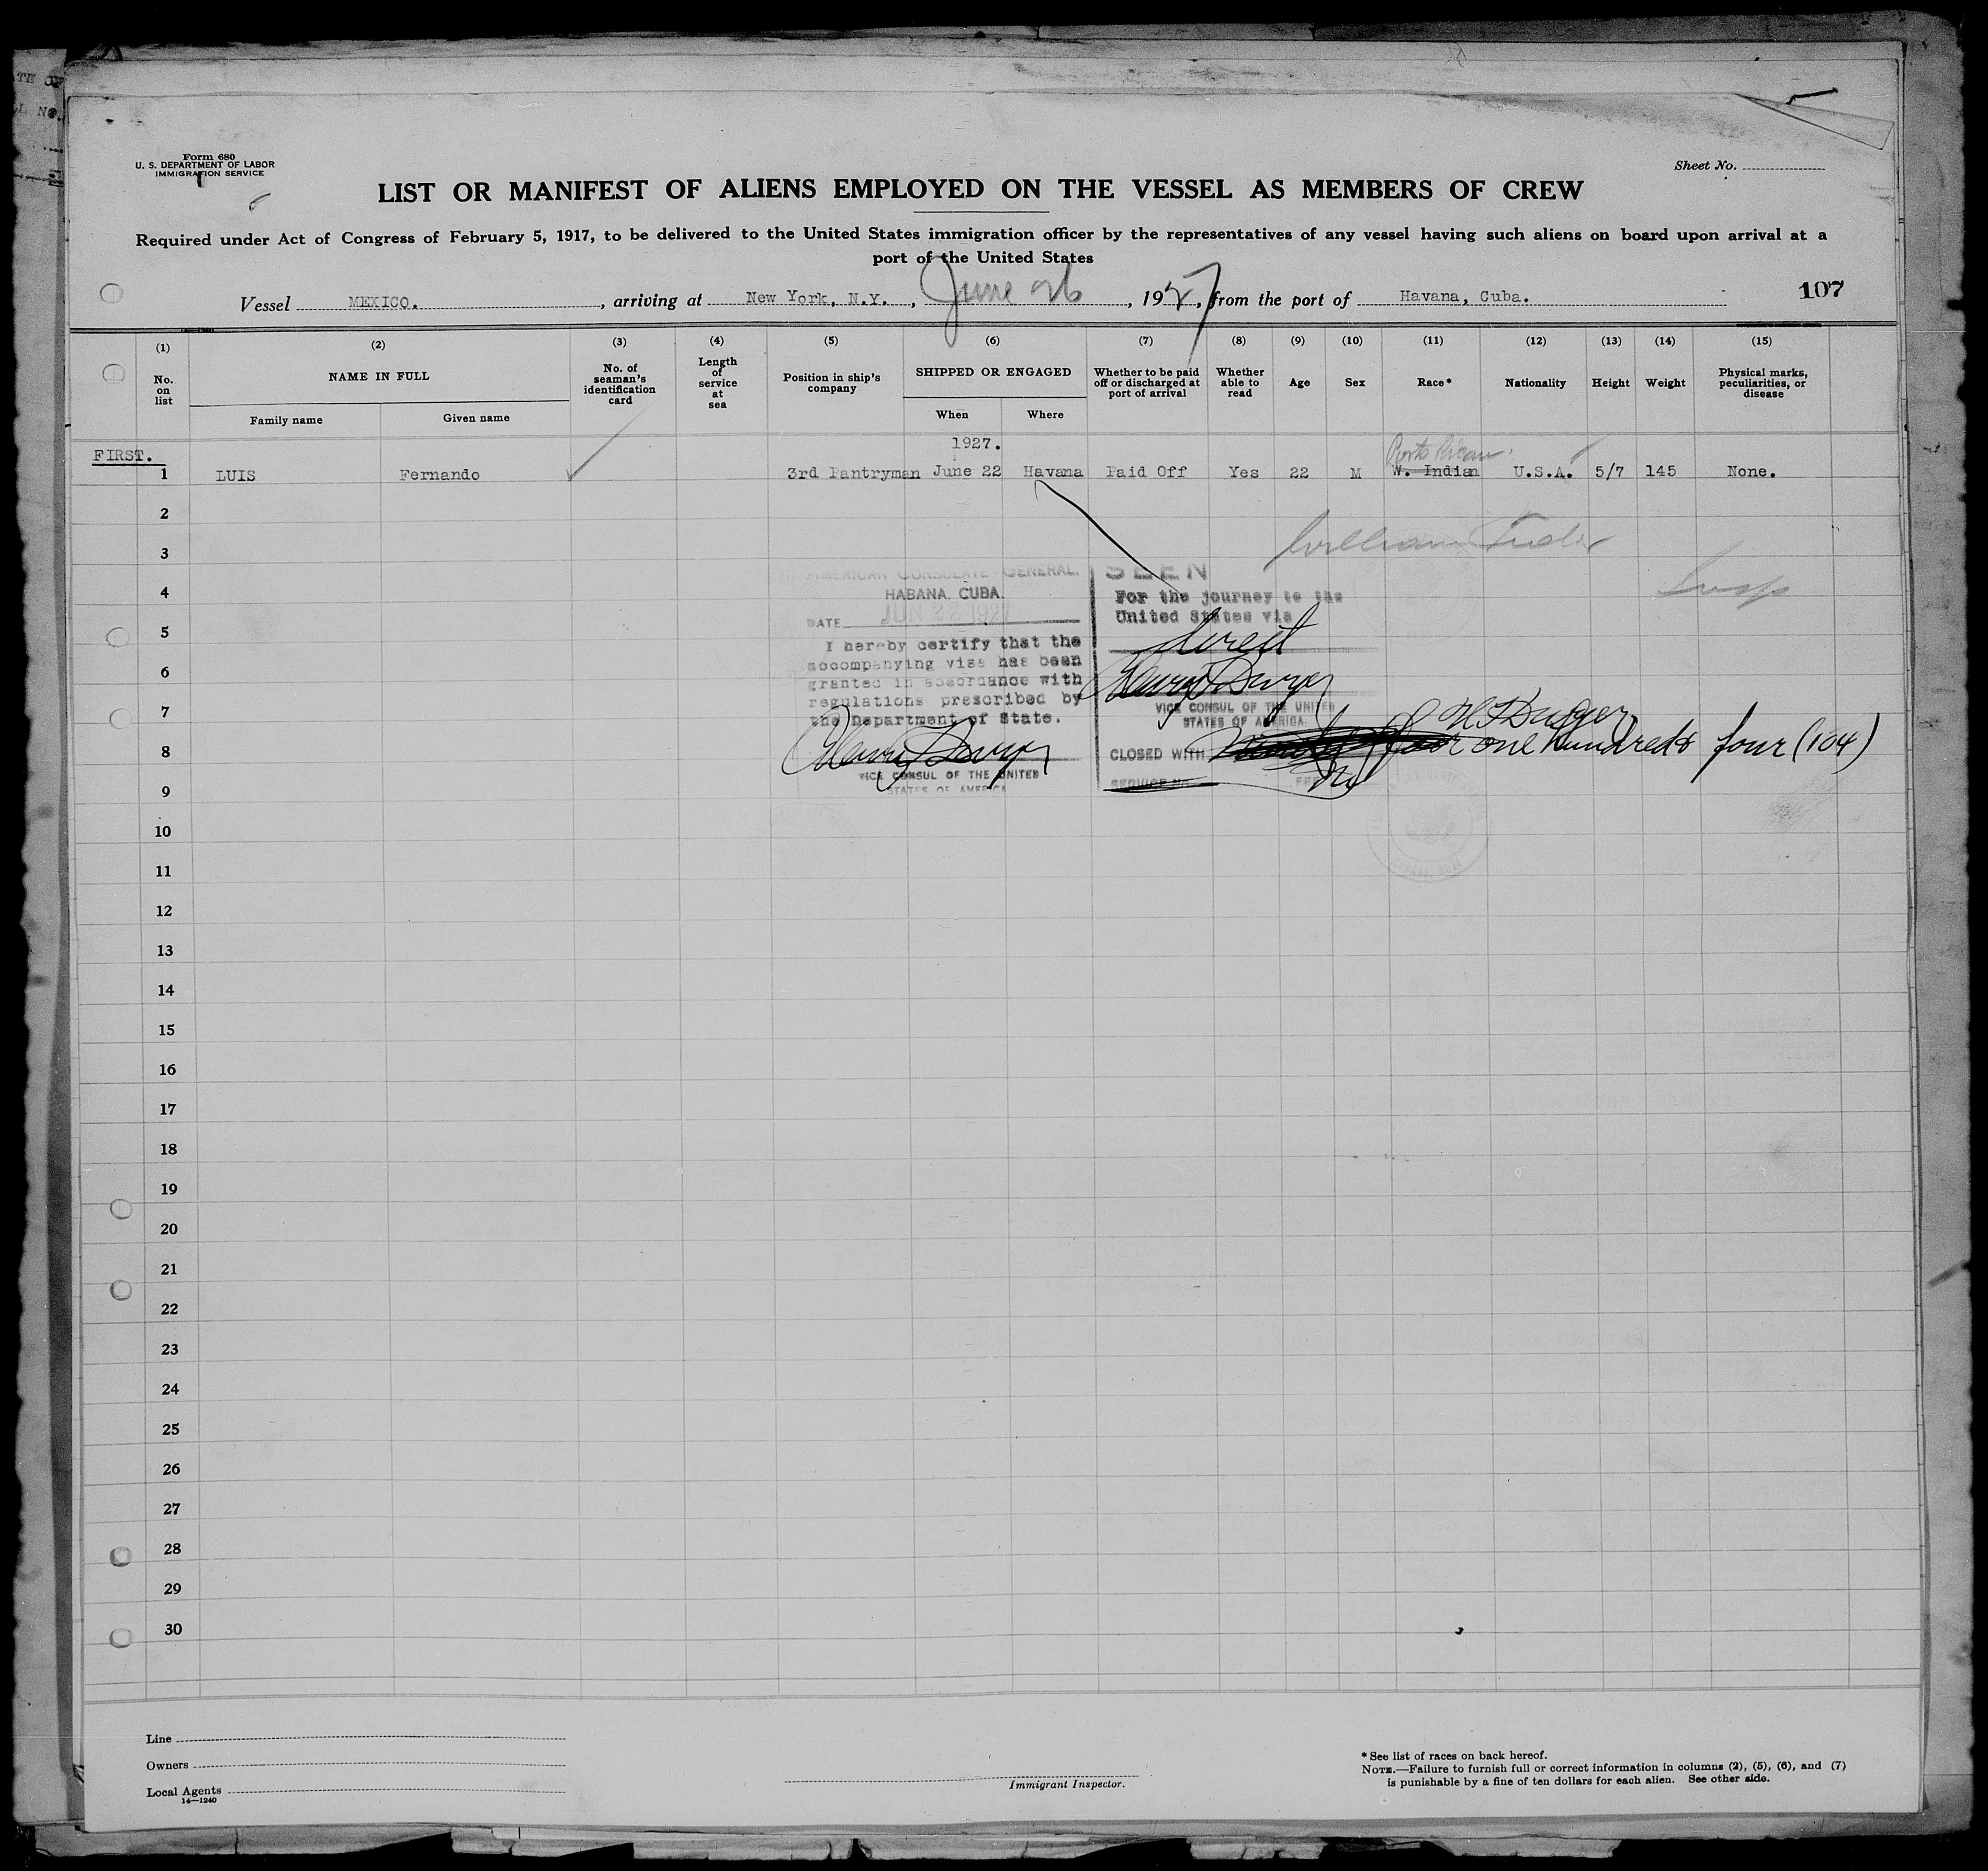 TE OF
L NO.
Form 680
U. S. DEPARTMENT OF LABOR
IMMIGRATION SERVICE
Sheet No.
LIST OR MANIFEST OF ALIENS EMPLOYED ON THE VESSEL AS MEMBERS OF CREW
Required under Act of Congress of February 5, 1917, to be delivered to the United States immigration officer by the representatives of any vessel having such aliens on board upon arrival at a
port of the United States
Vessel MEXICO. , arriving at New York, N.Y. , June 26 , 1927, from the port of Havana, Cuba. 107
(1) (2) (3) (4) (5) (6) (7) (8) (9) (10) (11) (12) (13) (14) (15)
No. on list
NAME IN FULL
Family name
Given name
No. of seaman's identification card
Length of service at sea
Position in ship's company
SHIPPED OR ENGAGED
When
Where
Whether to be paid off or discharged at port of arrival
Whether able to read
Age
Sex
Race*
Nationality
Height
Weight
Physical marks, peculiarities, or disease
1927.
FIRST.
Porto Rican
1 LUIS Fernando 3rd Pantryman June 22 Havana Paid Off Yes 22 M W. Indian U.S.A. 5/7 145 None.
2
3
William
4
5
6
7
8
9
10
11
12
13
14
15
16
17
18
19
20
21
22
23
24
25
26
27
28
29
30
AMERICAN CONSULATE-GENERAL.
HABANA. CUBA.
DATE JUN 22 1927
I hereby certify that the
accompanying visa has been
granted in accordance with
regulations prescribed by
the Department of State.
VICE CONSUL OF THE UNITED
STATES OF AMERICA
SEEN
For the journey to the
United States via
direct
VICE CONSUL OF THE UNITED
STATES OF AMERICA.
CLOSED WITH one hundred & four (104)
SERVICE No.
Line
Owners
Local Agents
14—1240
Immigrant Inspector.
* See list of races on back hereof.
NOTE.—Failure to furnish full or correct information in columns (2), (5), (6), and (7)
is punishable by a fine of ten dollars for each alien. See other side.